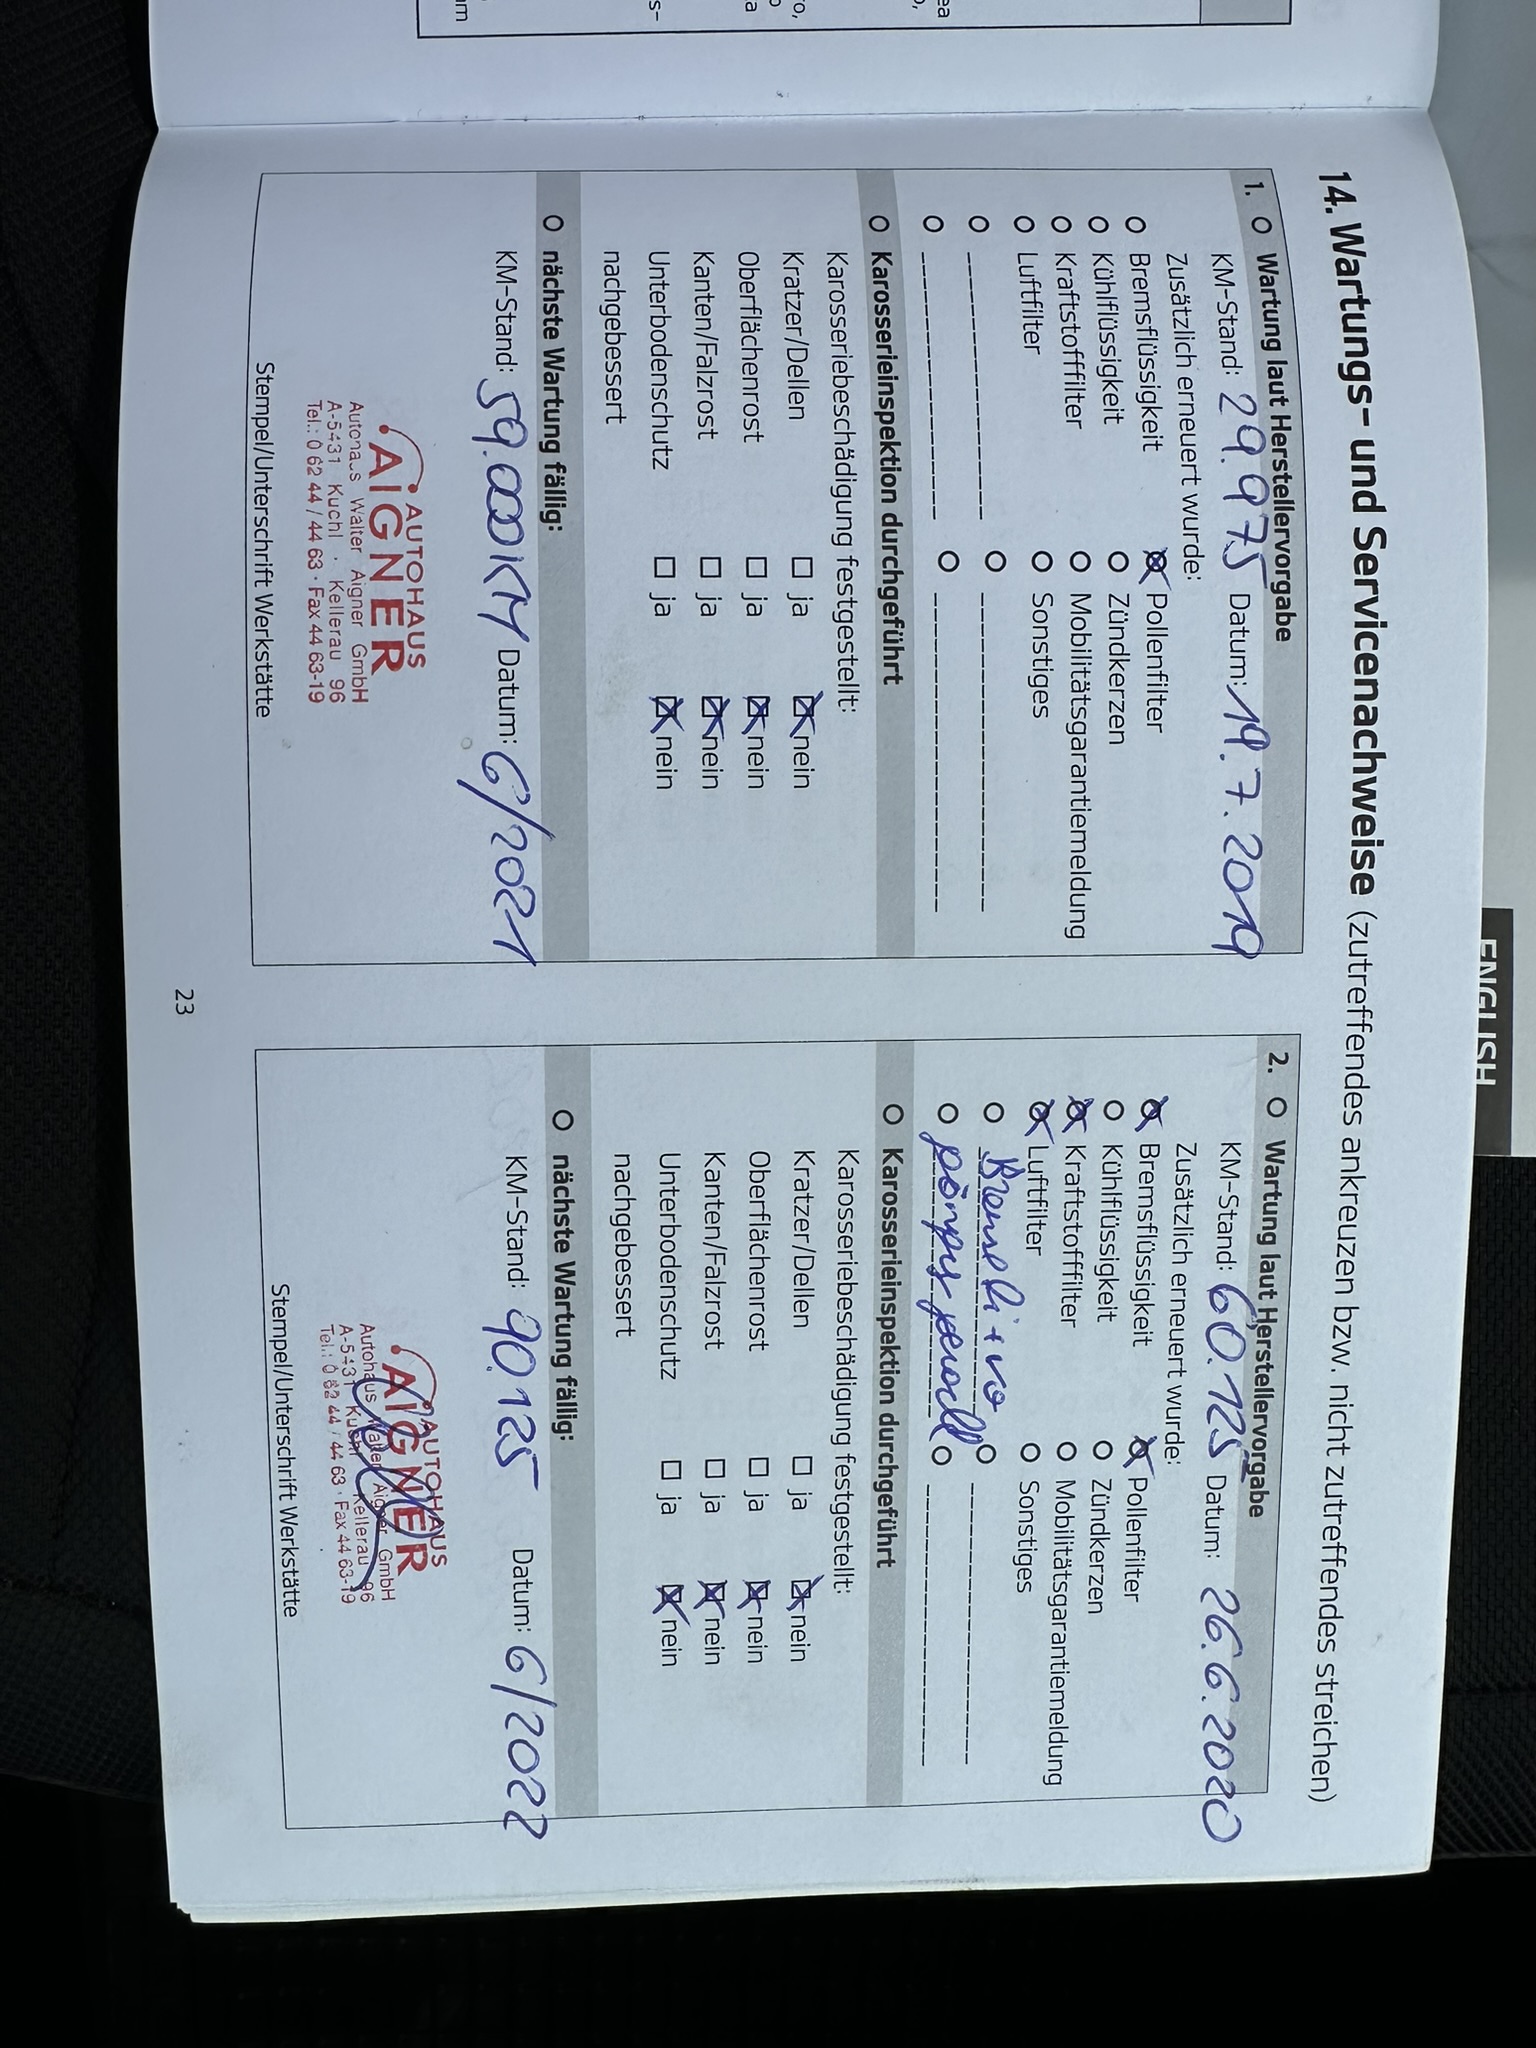 14. Wartungs- und Servicenachweise (zutreffendes ankreuzen bzw. nicht zutreffendes streichen)
1. Wartung laut Herstellervorgabe
KM-Stand: 29.975 Datum: 19.7.2019
Zusätzlich erneuert wurde:
Bremsflüssigkeit Pollenfilter
Kühlflüssigkeit Zündkerzen
Kraftstofffilter Mobilitätsgarantiemeldung
Luftfilter Sonstiges
Karosserieinspektion durchgeführt
Karosseriebeschädigung festgestellt:
Kratzer/Dellen ja nein
Oberflächenrost ja nein
Kanten/Falzrost ja nein
Unterbodenschutz ja nein
nachgebessert
nächste Wartung fällig:
KM-Stand: 59.000KM Datum: 6/2021
AUTOHAUS
AIGNER
Autohaus Walter Aigner GmbH
A-5431 Kuchl · Kellerau 96
Tel.: 0 62 44 / 44 63 · Fax 44 63-19
Stempel/Unterschrift Werkstätte
23
2. Wartung laut Herstellervorgabe
KM-Stand: 60.125 Datum: 26.6.2020
Zusätzlich erneuert wurde:
Bremsflüssigkeit Pollenfilter
Kühlflüssigkeit Zündkerzen
Kraftstofffilter Mobilitätsgarantiemeldung
Luftfilter Sonstiges
Karosserieinspektion durchgeführt
Karosseriebeschädigung festgestellt:
Kratzer/Dellen ja nein
Oberflächenrost ja nein
Kanten/Falzrost ja nein
Unterbodenschutz ja nein
nachgebessert
nächste Wartung fällig:
KM-Stand: 90.125 Datum: 6/2022
AUTOHAUS
AIGNER
Autohaus Walter Aigner GmbH
A-5431 Kuchl Kellerau 96
Tel.: 0 62 44 / 44 63 · Fax 44 63-19
Stempel/Unterschrift Werkstätte
ENGLISH